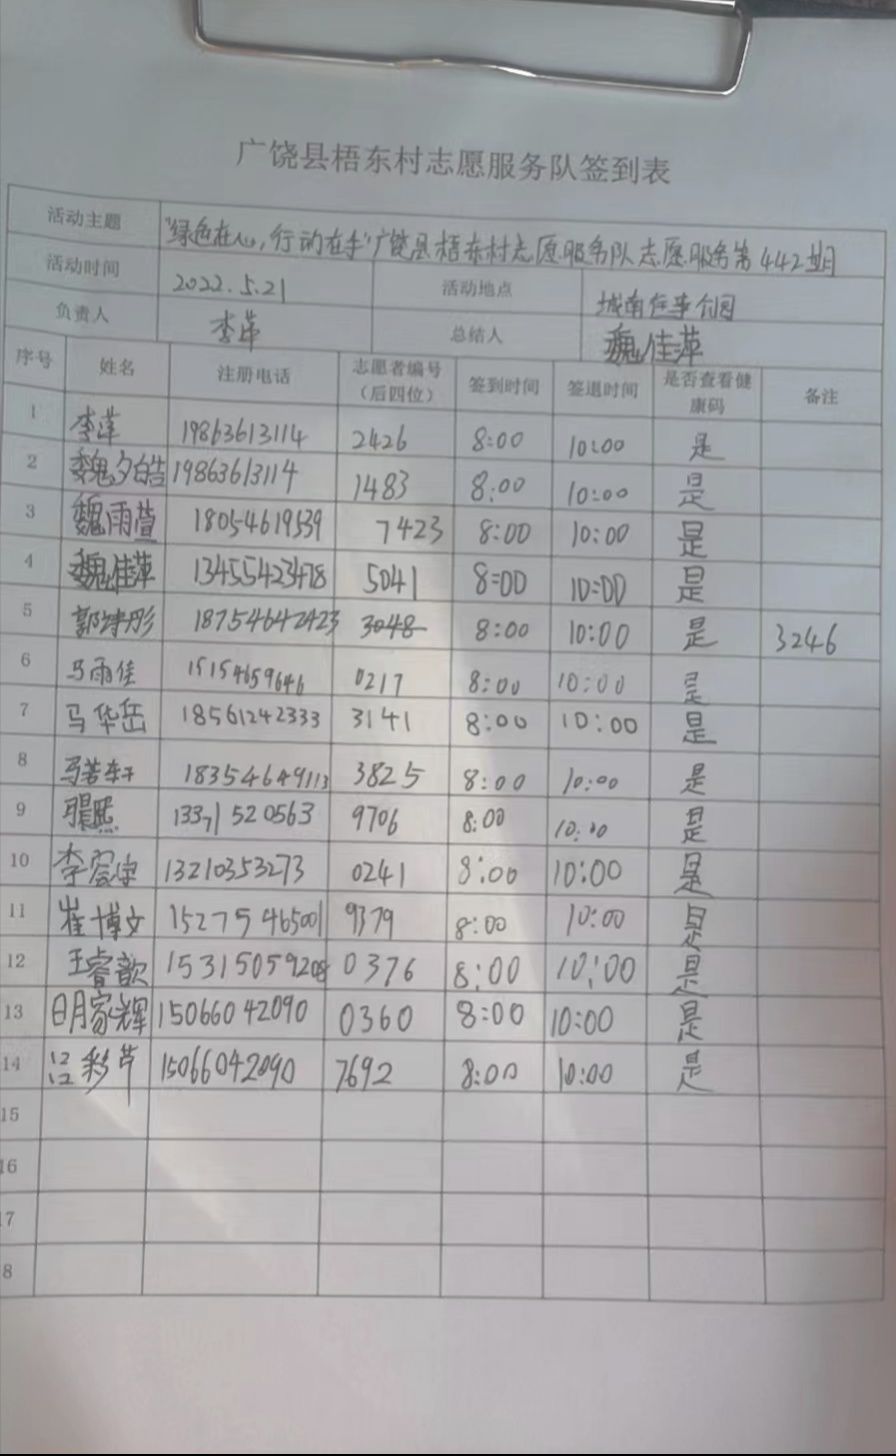 广饶县梧东村志愿服务队签到表
活动主题 "绿色在心,行动在手"广饶县梧东村志愿服务队志愿服务第442期
活动时间 2022.5.21 活动地点 城南 公园
负责人 李萍 总结人 魏佳萍
序号 姓名 注册电话 志愿者编号(后四位) 签到时间 签退时间 是否查看健康码 备注
1 李萍 19863613114 2426 8:00 10:00 是
2 魏夕皓 19863613114 1483 8:00 10:00 是
3 魏雨萱 18054619539 7423 8:00 10:00 是
4 魏佳萍 13455423478 5041 8:00 10:00 是
5 18754642423 3048 8:00 10:00 是 3246
6 马雨佳 15154659646 0217 8:00 10:00 是
7 马华岳 18561242333 3141 8:00 10:00 是
8 马若轩 18354649113 3825 8:00 10:00 是
9 13371520563 9706 8:00 10:10 是
10 13210353273 0241 8:00 10:00 是
11 崔博文 15275465001 9379 8:00 10:00 是
12 王睿歆 15315059208 0376 8:00 10:00 是
13 明家辉 15066042090 0360 8:00 10:00 是
14 吕彩芹 15066042090 7692 8:00 10:00 是
15
16
17
8